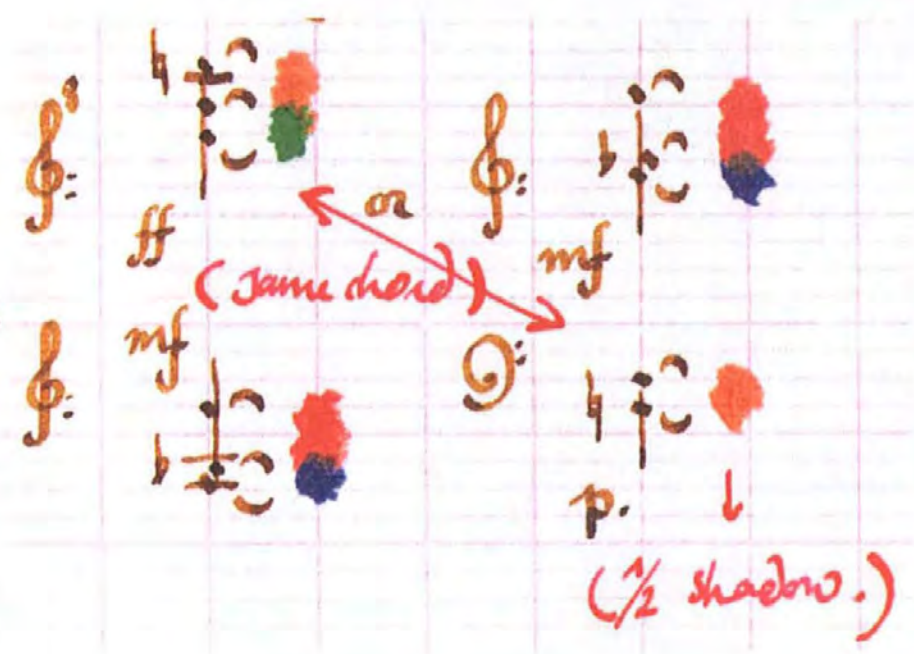 8
ff
or
mf
(same chord)
mf
p.
(1/2 shadow.)